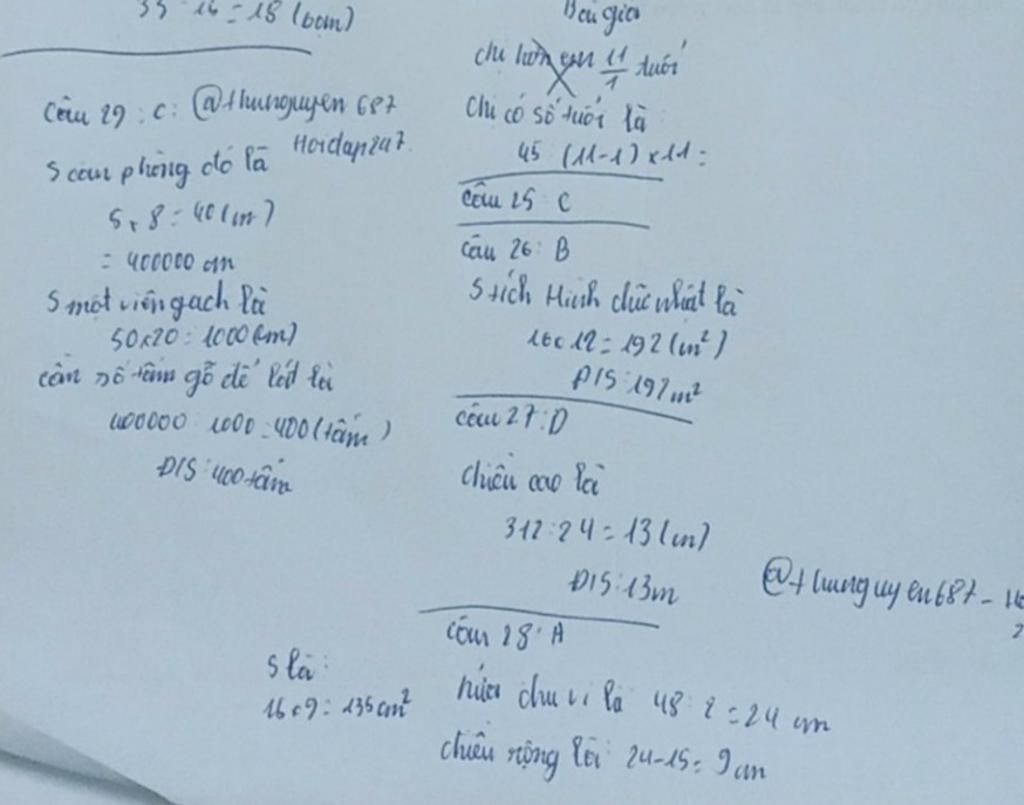 = 18 (bạn)
Câu 29 : C : @thunguyen 687
Hoidap247.
S căn phòng đó là
5 x 8 = 40 (m)
= 400000 cm
S một viên gạch là
50x20 = 1000 (cm)
cần số tấm gỗ để lót là
400000 : 1000 = 400 (tấm)
Đ/S : 400 tấm
Bài giải
chị hơn em 11/1 tuổi
Chị có số tuổi là
45 : (11-1) x 11 =
câu 25 : C
câu 26 : B
S tích Hình chữ nhật là
16 x 12 = 192 (m²)
Đ/S : 192 m²
câu 27 : D
chiều cao là
312 : 24 = 13 (m)
Đ/S : 13m
@thunguyen687 -
câu 28 : A
nửa chu vi là 48 : 2 = 24 cm
chiều rộng là : 24-15 = 9 cm
S là :
x 9 = 135 cm²